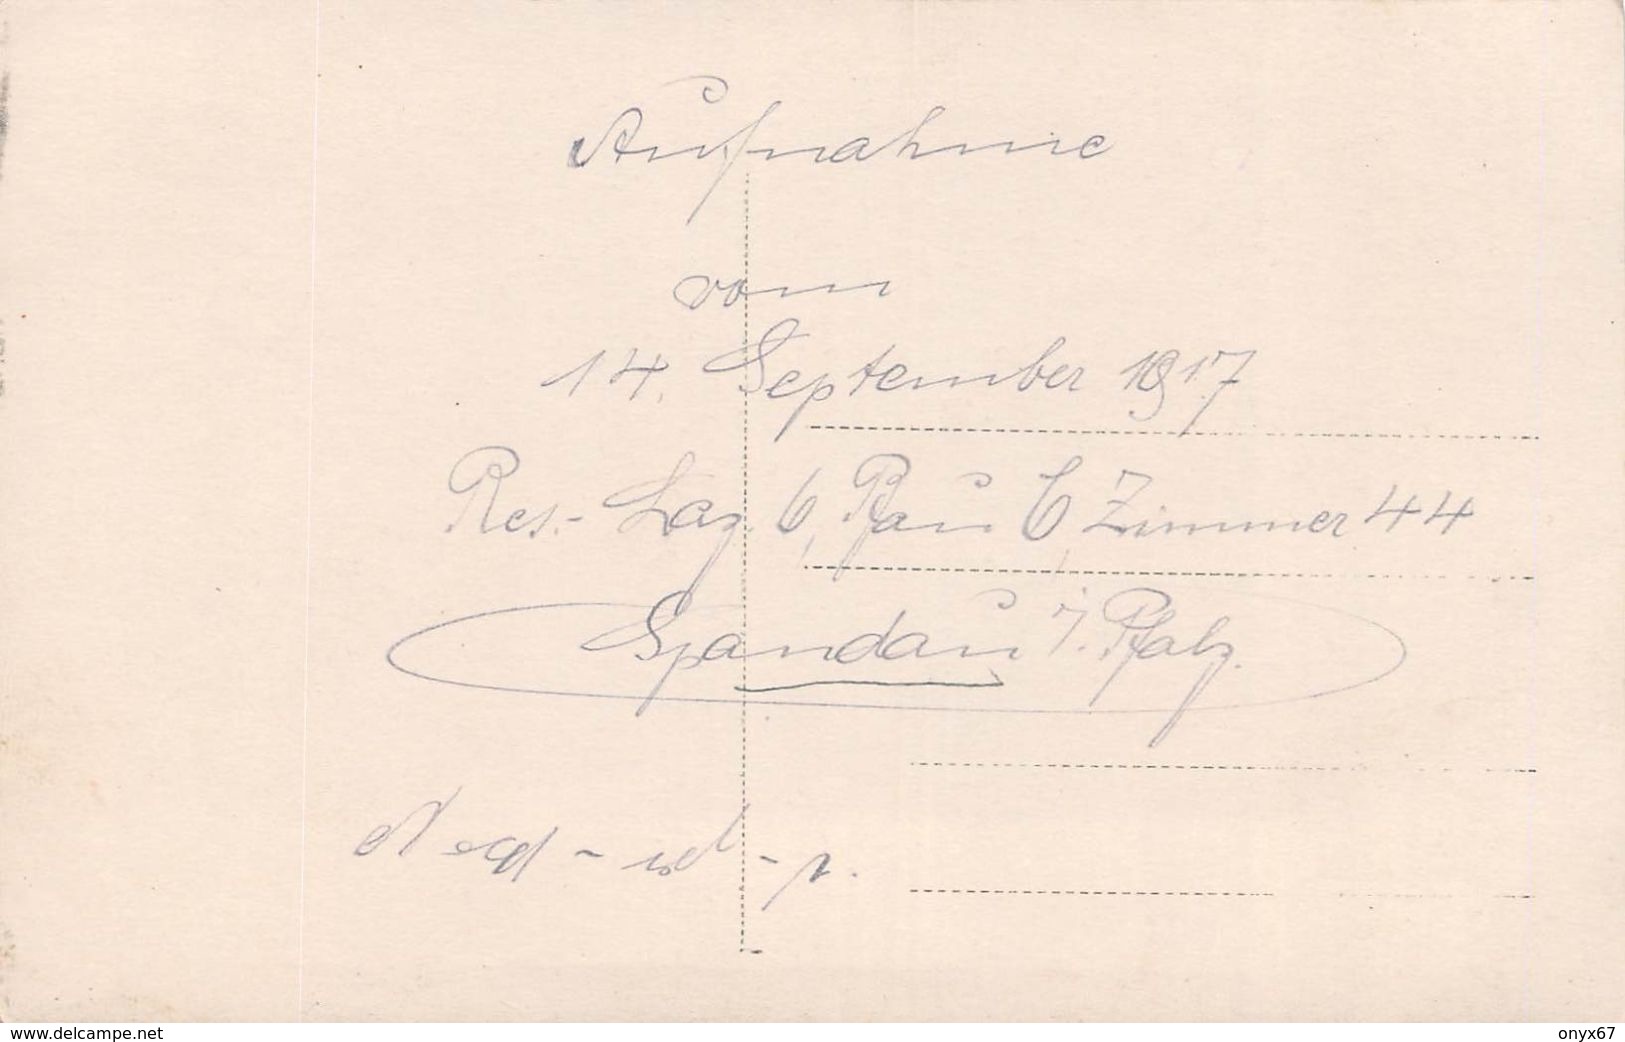 Aufnahme
vom
14. September 1917
Res.-Laz. 6, Bau C, Zimmer 44
Spandau i. Pfalz.
www.delcampe.net
onyx67